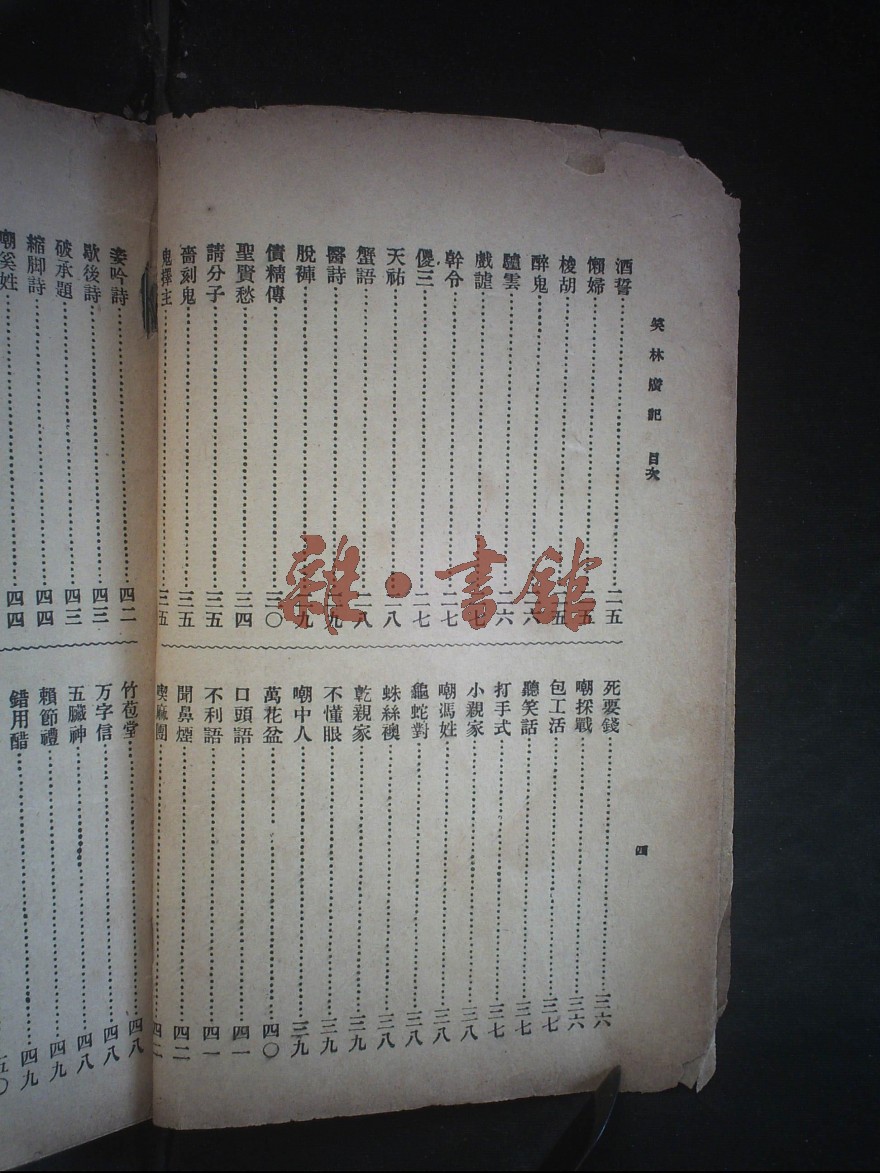 笑林廣記 目次
四
酒誓 二五
懶婦 二五
梭胡 二五
醉鬼 二六
驢雲 二六
戲謔 二七
幹令 二七
傻三 二七
天祐 二八
蟹語 二八
醫詩 二九
脫褲 二九
債精傳 三〇
聖賢愁 三四
請分子 三五
嗇刻鬼 三五
鬼擇主 三五
死要錢 三六
嘲採戰 三六
包工活 三七
聽笑話 三七
打手式 三七
小親家 三八
嘲馮姓 三八
龜蛇對 三八
蛛絲襖 三八
乾親家 三九
不懂眼 三九
嘲中人 三九
萬花盆 四〇
口頭語 四一
不利語 四一
聞鼻煙 四二
喫麻團 四二
妾吟詩 四二
歇後詩 四三
破承題 四三
縮脚詩 四四
嘲奚姓 四四
竹苞堂 四八
万字信 四八
五臟神 四八
賴節禮 四九
錯用醋 四九
五〇
雜·書館